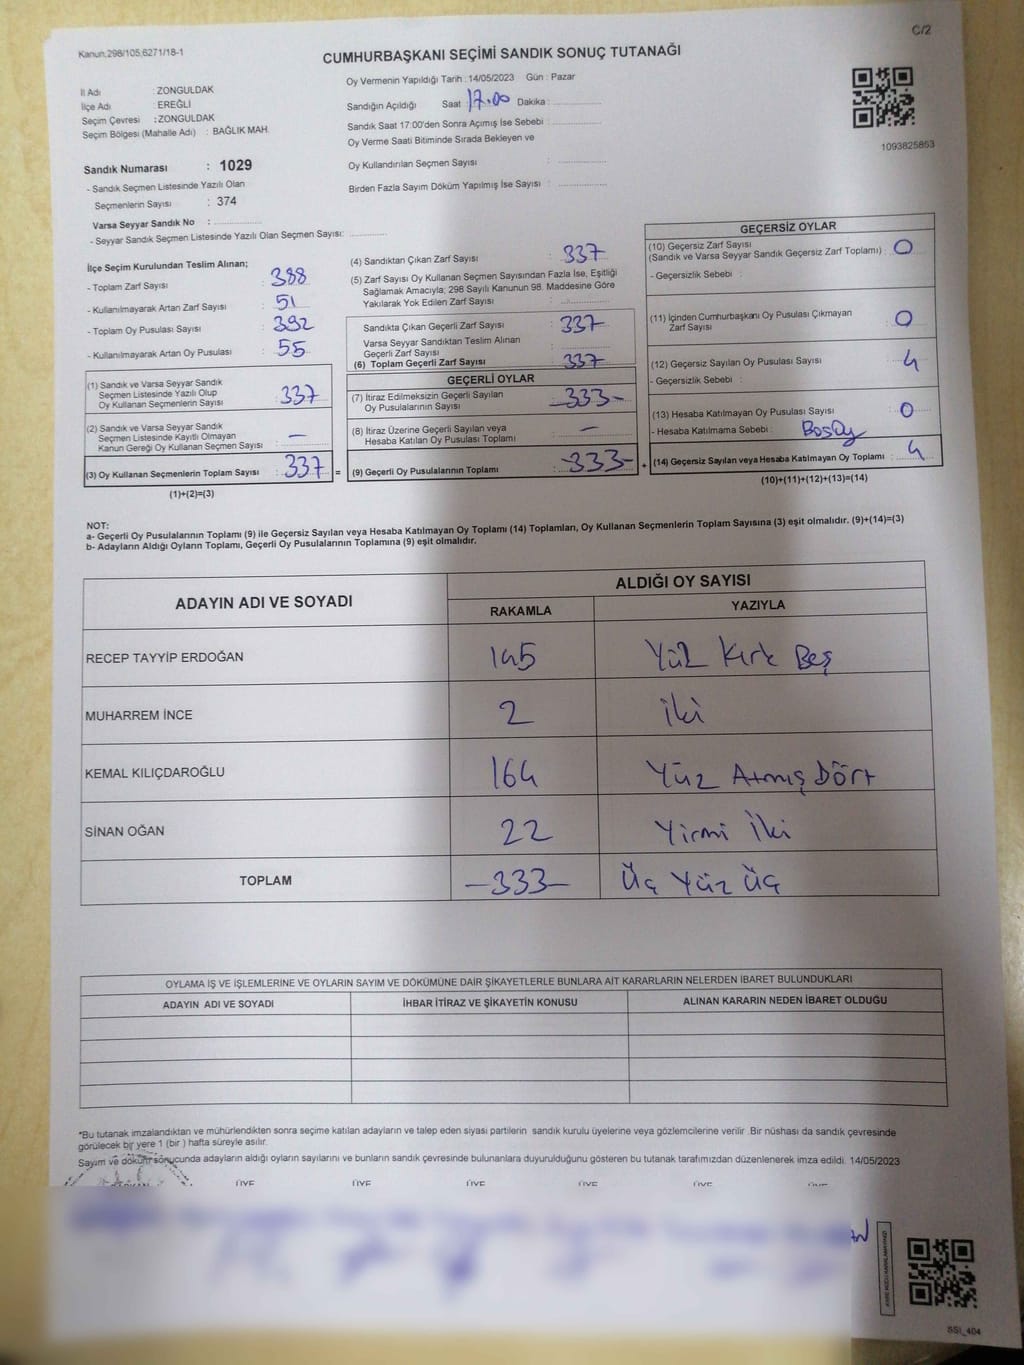 C/2
Kanun.298/105,6271/18-1
CUMHURBAŞKANI SEÇİMİ SANDIK SONUÇ TUTANAĞI
İl Adı : ZONGULDAK
İlçe Adı : EREĞLİ
Seçim Çevresi : ZONGULDAK
Seçim Bölgesi (Mahalle Adı) : BAĞLIK MAH.
Oy Vermenin Yapıldığı Tarih : 14/05/2023 Gün : Pazar
Sandığın Açıldığı Saat 17.00 Dakika :
Sandık Saat 17:00'den Sonra Açımış İse Sebebi :
Oy Verme Saati Bitiminde Sırada Bekleyen ve
Oy Kullandırılan Seçmen Sayısı :
Birden Fazla Sayım Döküm Yapılmış İse Sayısı :
1093825853
Sandık Numarası : 1029
- Sandık Seçmen Listesinde Yazılı Olan
Seçmenlerin Sayısı : 374
Varsa Seyyar Sandık No :
- Seyyar Sandık Seçmen Listesinde Yazılı Olan Seçmen Sayısı:
İlçe Seçim Kurulundan Teslim Alınan;
- Toplam Zarf Sayısı : 388
- Kullanılmayarak Artan Zarf Sayısı : 51
- Toplam Oy Pusulası Sayısı : 392
- Kullanılmayarak Artan Oy Pusulası : 55
(1) Sandık ve Varsa Seyyar Sandık
Seçmen Listesinde Yazılı Olup
Oy Kullanan Seçmenlerin Sayısı : 337
(2) Sandık ve Varsa Seyyar Sandık
Seçmen Listesinde Kayıtlı Olmayan
Kanun Gereği Oy Kullanan Seçmen Sayısı : —
(3) Oy Kullanan Seçmenlerin Toplam Sayısı : 337 =
(1)+(2)=(3)
(4) Sandıktan Çıkan Zarf Sayısı : 337
(5) Zarf Sayısı Oy Kullanan Seçmen Sayısından Fazla İse, Eşitliği
Sağlamak Amacıyla; 298 Sayılı Kanunun 98. Maddesine Göre
Yakılarak Yok Edilen Zarf Sayısı :
Sandıkta Çıkan Geçerli Zarf Sayısı : 337
Varsa Seyyar Sandıktan Teslim Alınan
Geçerli Zarf Sayısı :
(6) Toplam Geçerli Zarf Sayısı : 337
GEÇERLİ OYLAR
(7) İtiraz Edilmeksizin Geçerli Sayılan
Oy Pusulalarının Sayısı : -333-
(8) İtiraz Üzerine Geçerli Sayılan veya
Hesaba Katılan Oy Pusulası Toplamı : —
(9) Geçerli Oy Pusulalarının Toplamı : -333- +
GEÇERSİZ OYLAR
(10) Geçersiz Zarf Sayısı
(Sandık ve Varsa Seyyar Sandık Geçersiz Zarf Toplamı) : 0
- Geçersizlik Sebebi :
(11) İçinden Cumhurbaşkanı Oy Pusulası Çıkmayan
Zarf Sayısı : 0
(12) Geçersiz Sayılan Oy Pusulası Sayısı : 4
- Geçersizlik Sebebi :
(13) Hesaba Katılmayan Oy Pusulası Sayısı : 0
- Hesaba Katılmama Sebebi : Boş Oy
(14) Geçersiz Sayılan veya Hesaba Katılmayan Oy Toplamı : 4
(10)+(11)+(12)+(13)=(14)
NOT:
a- Geçerli Oy Pusulalarının Toplamı (9) ile Geçersiz Sayılan veya Hesaba Katılmayan Oy Toplamı (14) Toplamları, Oy Kullanan Seçmenlerin Toplam Sayısına (3) eşit olmalıdır. (9)+(14)=(3)
b- Adayların Aldığı Oyların Toplamı, Geçerli Oy Pusulalarının Toplamına (9) eşit olmalıdır.
ADAYIN ADI VE SOYADI ALDIĞI OY SAYISI
RAKAMLA YAZIYLA
RECEP TAYYİP ERDOĞAN 145 Yüz Kırk Beş
MUHARREM İNCE 2 iki
KEMAL KILIÇDAROĞLU 164 Yüz Atmış Dört
SİNAN OĞAN 22 Yirmi İki
TOPLAM -333- Üç Yüz Üç
OYLAMA İŞ VE İŞLEMLERİNE VE OYLARIN SAYIM VE DÖKÜMÜNE DAİR ŞİKAYETLERLE BUNLARA AİT KARARLARIN NELERDEN İBARET BULUNDUKLARI
ADAYIN ADI VE SOYADI İHBAR İTİRAZ VE ŞİKAYETİN KONUSU ALINAN KARARIN NEDEN İBARET OLDUĞU
*Bu tutanak imzalandıktan ve mühürlendikten sonra seçime katılan adayların ve talep eden siyasi partilerin sandık kurulu üyelerine veya gözlemcilerine verilir .Bir nüshası da sandık çevresinde
görülecek bir yere 1 (bir ) hafta süreyle asılır.
Sayım ve döküm sonucunda adayların aldığı oyların sayılarını ve bunların sandık çevresinde bulunanlara duyurulduğunu gösteren bu tutanak tarafımızdan düzenlenerek imza edildi. 14/05/2023
ÜYE ÜYE ÜYE ÜYE ÜYE ÜYE
SSI_404